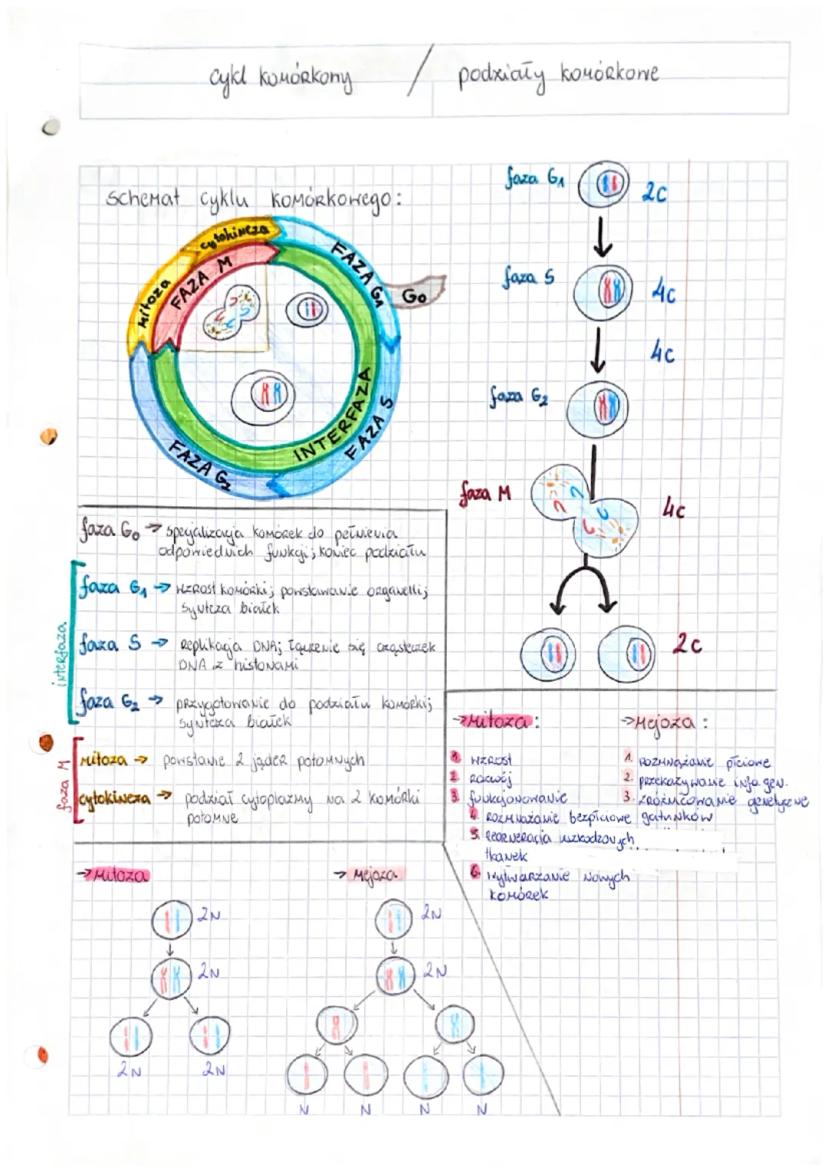 cykl komórkowy / podziały komórkowe
schemat cyklu komórkowego:
cytokineza
mitoza
FAZA M
FAZA G1
G0
INTERFAZA
FAZA S
FAZA G2
faza G1
2c
faza S
4c
4c
faza G2
faza M
4c
2c
faza G0 → specjalizacja komórek do pełnienia
odpowiednich funkcji; koniec podziału
interfaza
faza G1 → wzrost komórki; powstawanie organelli;
synteza białek
faza S → replikacja DNA; łączenie się cząsteczek
DNA z histonami
faza G2 → przygotowanie do podziału komórki;
synteza białek
faza M
mitoza → powstanie 2 jąder potomnych
cytokineza → podział cytoplazmy na 2 komórki
potomne
→ mitoza:
1. wzrost
2. rozwój
3. funkcjonowanie
4. rozmnażanie bezpłciowe
5. regeneracja uszkodzonych
tkanek
6. wytwarzanie nowych
komórek
→ Mejoza:
1. rozmnażanie płciowe
2. przekazywanie info.gen.
3. zróżnicowanie genetyczne
gatunków
→ mitoza
2N
2N
2N 2N
→ mejoza
2N
2N
N N N N